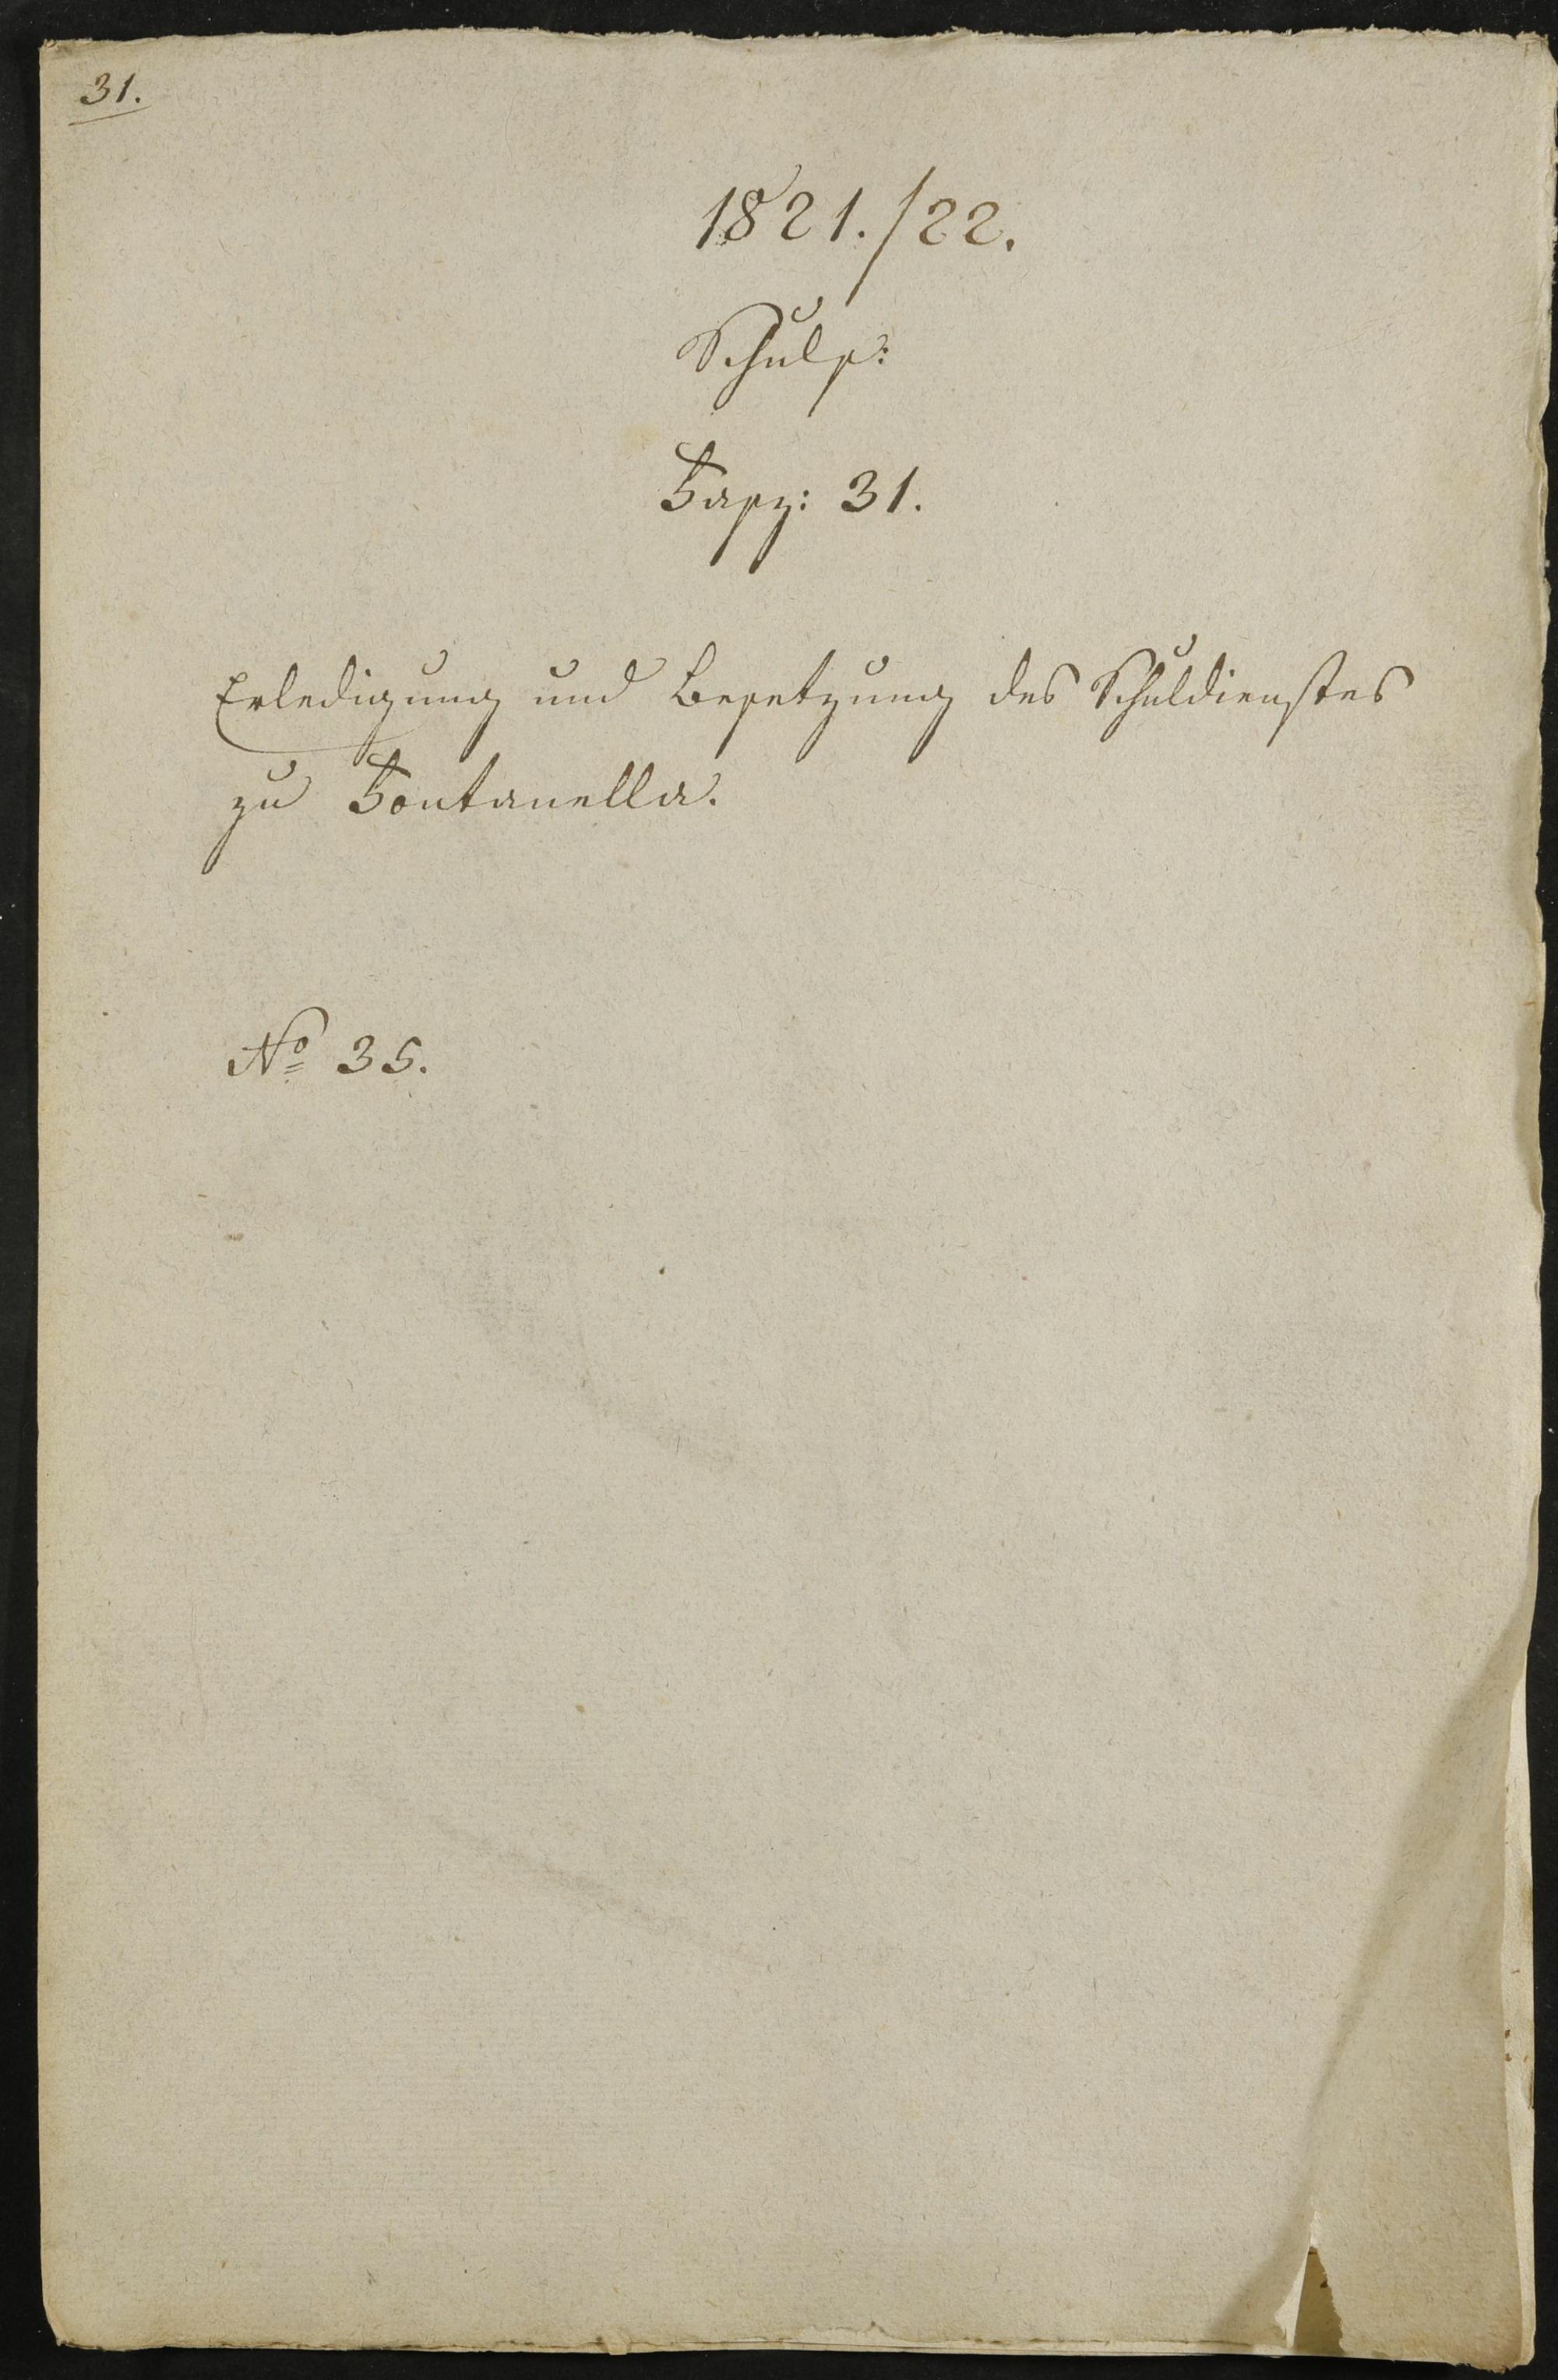 31.
1821./22.
Schuls:
Fasz: 31.
Erledigung und Besetzung des Schuldienstes
zu Fontanella.
No 35.